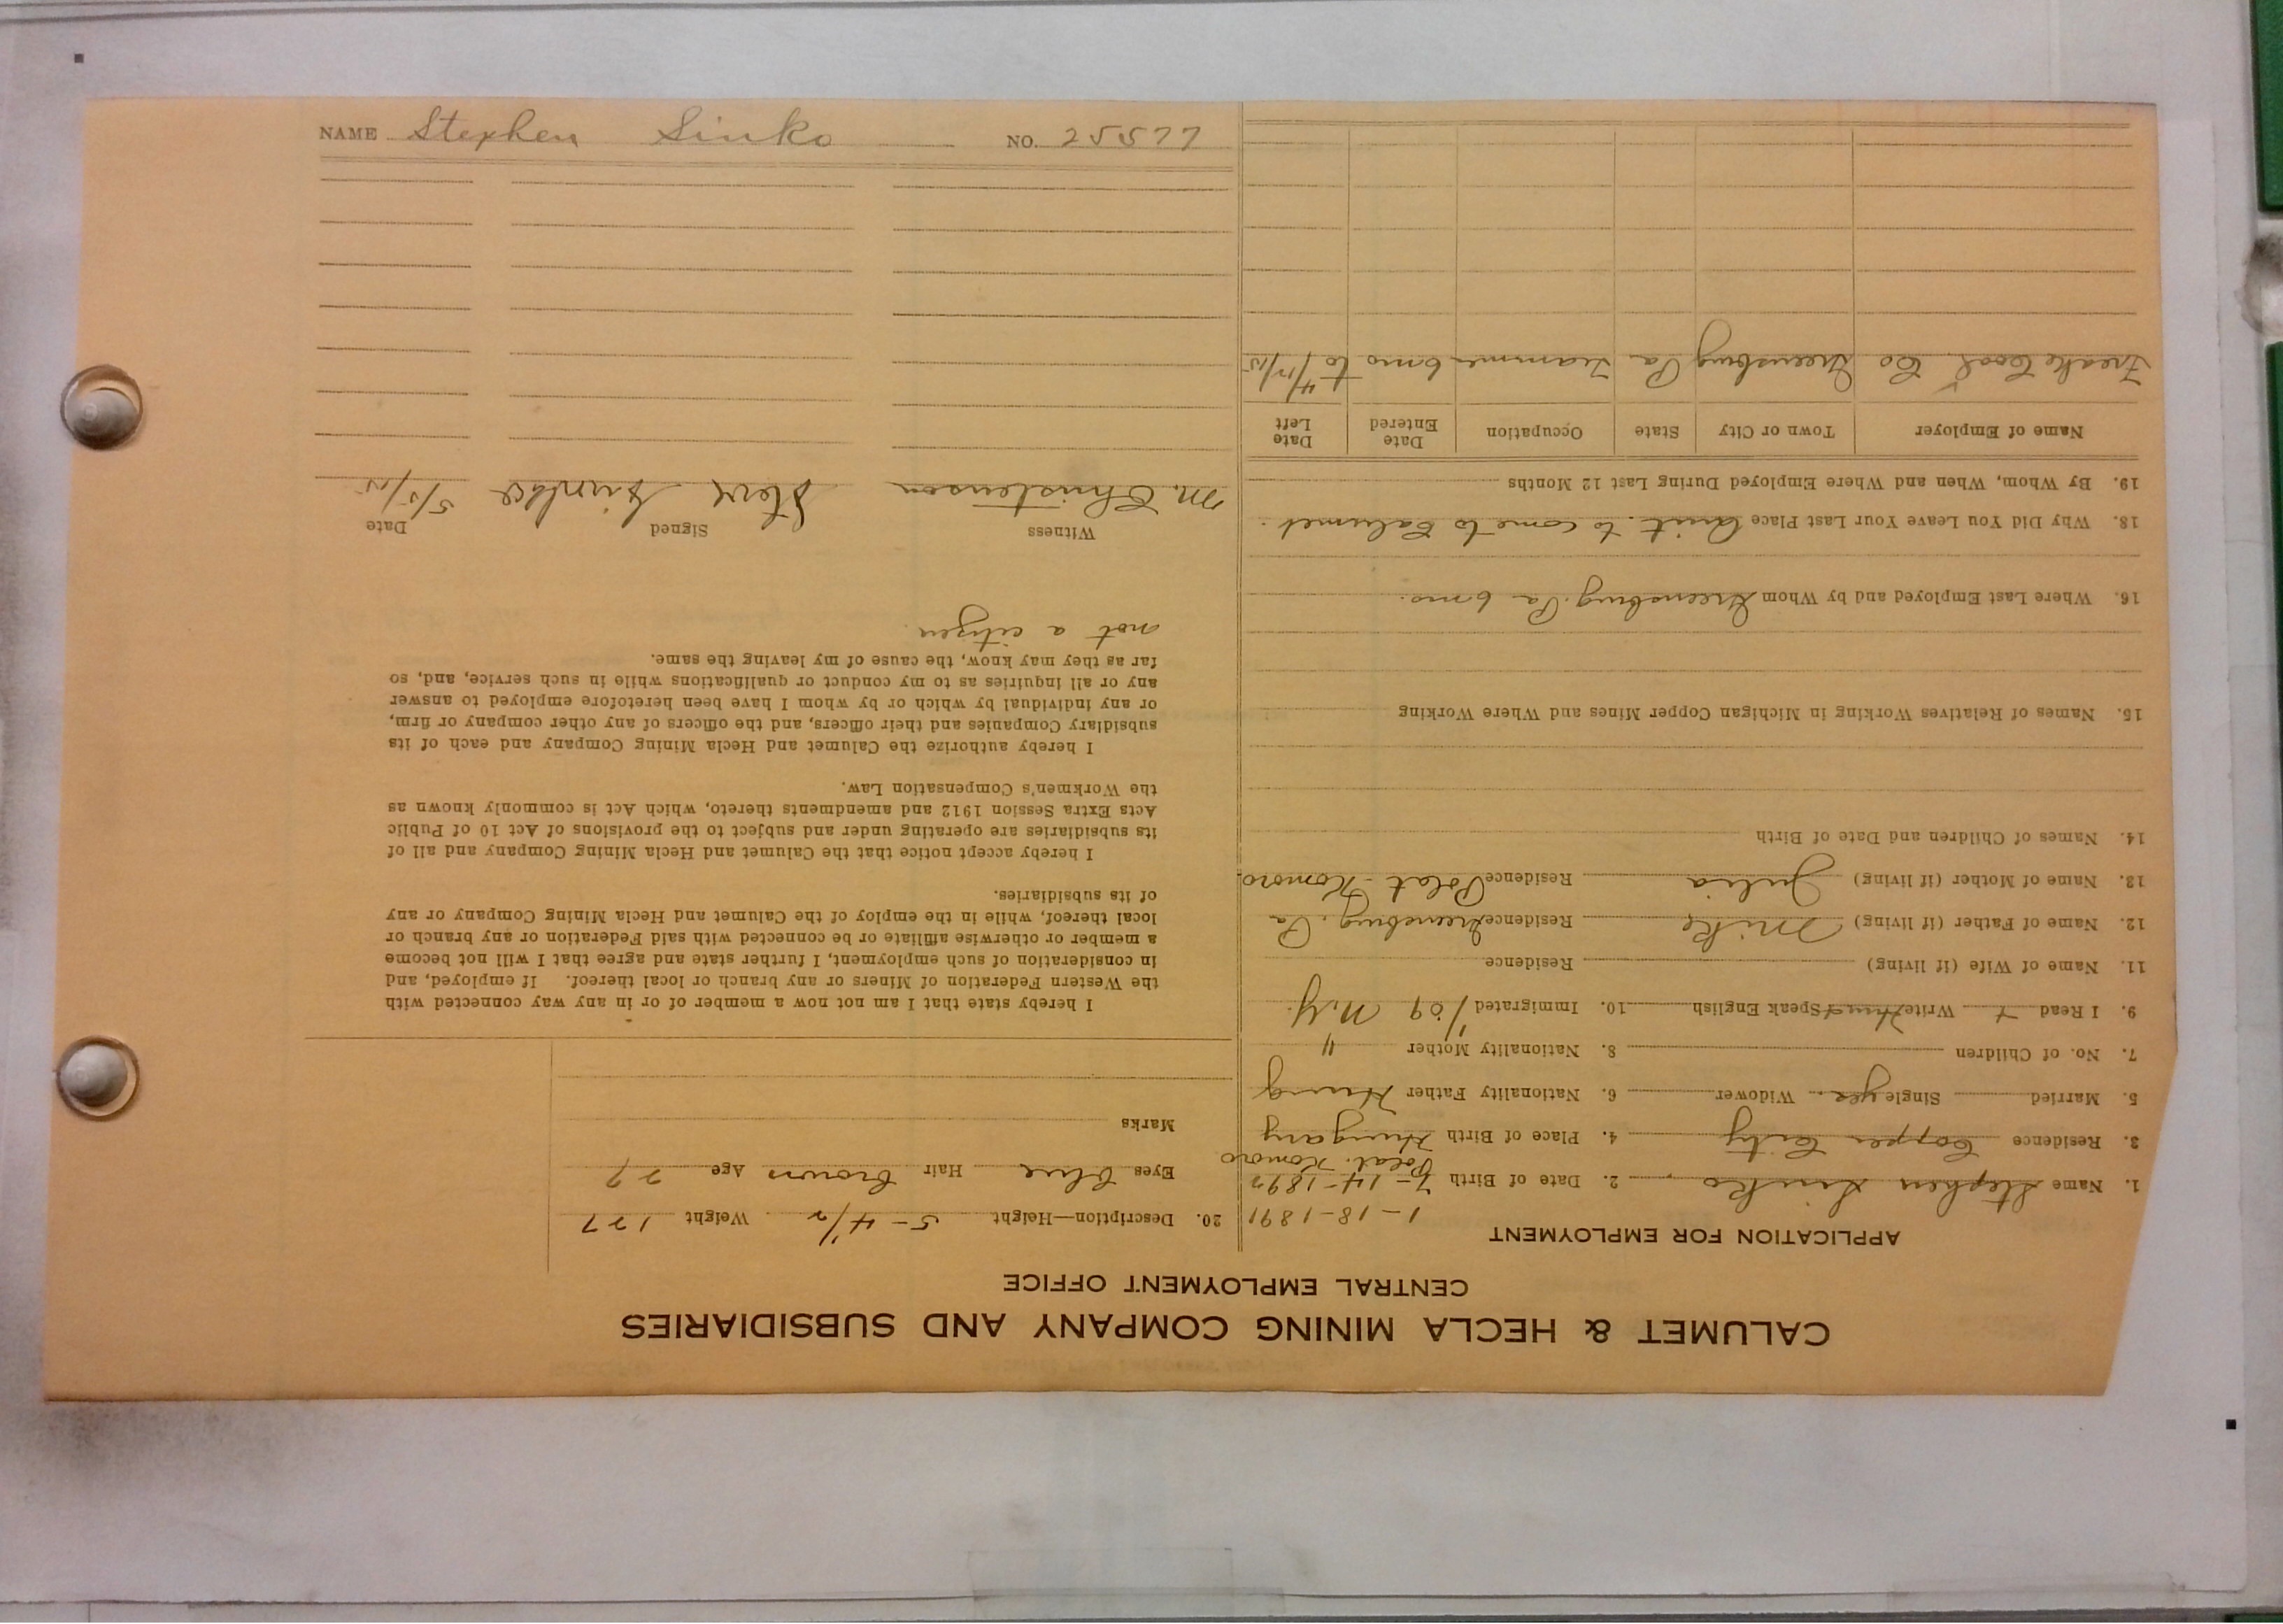 NAME Stephen Sinko NO. 25577
CALUMET & HECLA MINING COMPANY AND SUBSIDIARIES
CENTRAL EMPLOYMENT OFFICE
APPLICATION FOR EMPLOYMENT
1-18-1891
1. Name Stephen Sinko 2. Date of Birth 7-14-1892
Polat. Komoro
3. Residence Copper City 4. Place of Birth Hungary
5. Married Single yes. Widower 6. Nationality Father Hung
7. No. of Children 8. Nationality Mother "
9. I Read + Write Hung + Speak English 10. Immigrated 1/09 N.Y.
11. Name of Wife (if living) Residence
12. Name of Father (if living) Mike Residence Greensburg, Pa
13. Name of Mother (if living) Julia Residence Polat - Komoro.
14. Names of Children and Date of Birth
15. Names of Relatives Working in Michigan Copper Mines and Where Working
16. Where Last Employed and by Whom Greensburg. Pa 6 mo.
18. Why Did You Leave Your Last Place Quit to come to Calumet.
19. By Whom, When and Where Employed During Last 12 Months
Name of Employer Town or City State Occupation Date Entered Date Left
Coal Co Greensburg Pa Trammer 6 mo to 4/17/15
20. Description—Height 5-4 1/2 Weight 127
Eyes blue Hair brown Age 22
Marks
I hereby state that I am not now a member of or in any way connected with
the Western Federation of Miners or any branch or local thereof. If employed, and
in consideration of such employment, I further state and agree that I will not become
a member or otherwise affiliate or be connected with said Federation or any branch or
local thereof, while in the employ of the Calumet and Hecla Mining Company or any
of its subsidiaries.
I hereby accept notice that the Calumet and Hecla Mining Company and all of
its subsidiaries are operating under and subject to the provisions of Act 10 of Public
Acts Extra Session 1912 and amendments thereto, which Act is commonly known as
the Workmen's Compensation Law.
I hereby authorize the Calumet and Hecla Mining Company and each of its
subsidiary Companies and their officers, and the officers of any other company or firm,
or any individual by which or by whom I have been heretofore employed to answer
any or all inquiries as to my conduct or qualifications while in such service, and, so
far as they may know, the cause of my leaving the same.
not a citizen.
Witness Signed Date
M. Christenson Steve 5/5/15